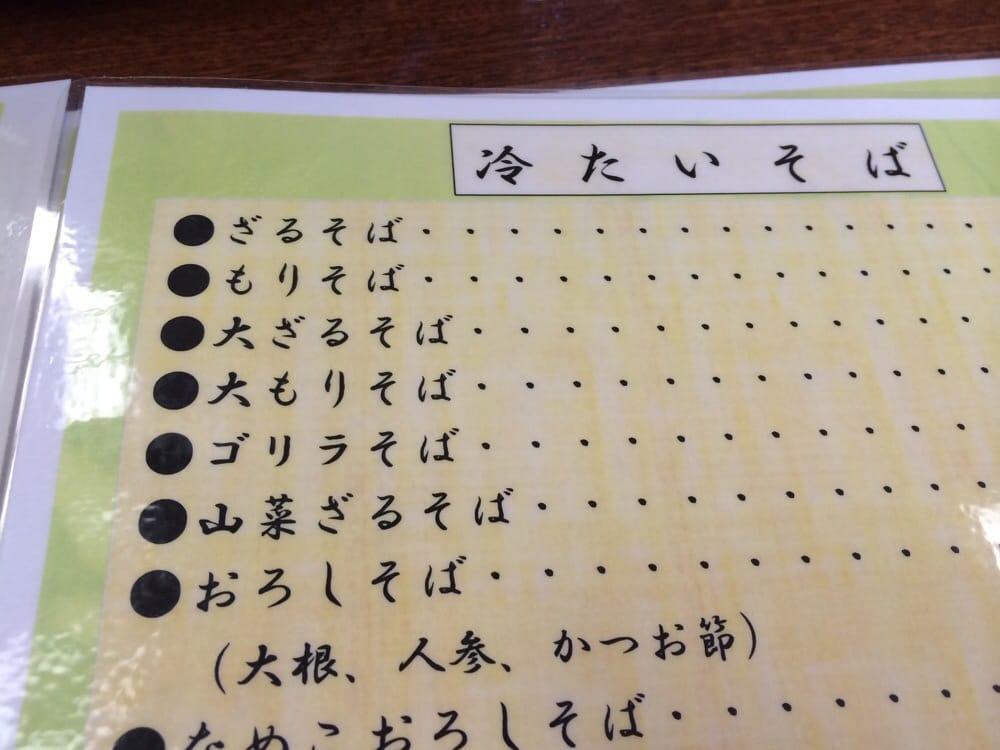 冷たいそば
●ざるそば・・・・・・・・・・・・・
●もりそば・・・・・・・・・・・・・
●大ざるそば・・・・・・・・・・・
●大もりそば・・・・・・・・・・・・
●ゴリラそば・・・・・・・・・・・
●山菜ざるそば・・・・・・・・・・
●おろしそば・・・・・・・・・・
(大根、人参、かつお節)
●なめこおろしそば・・・・・・・